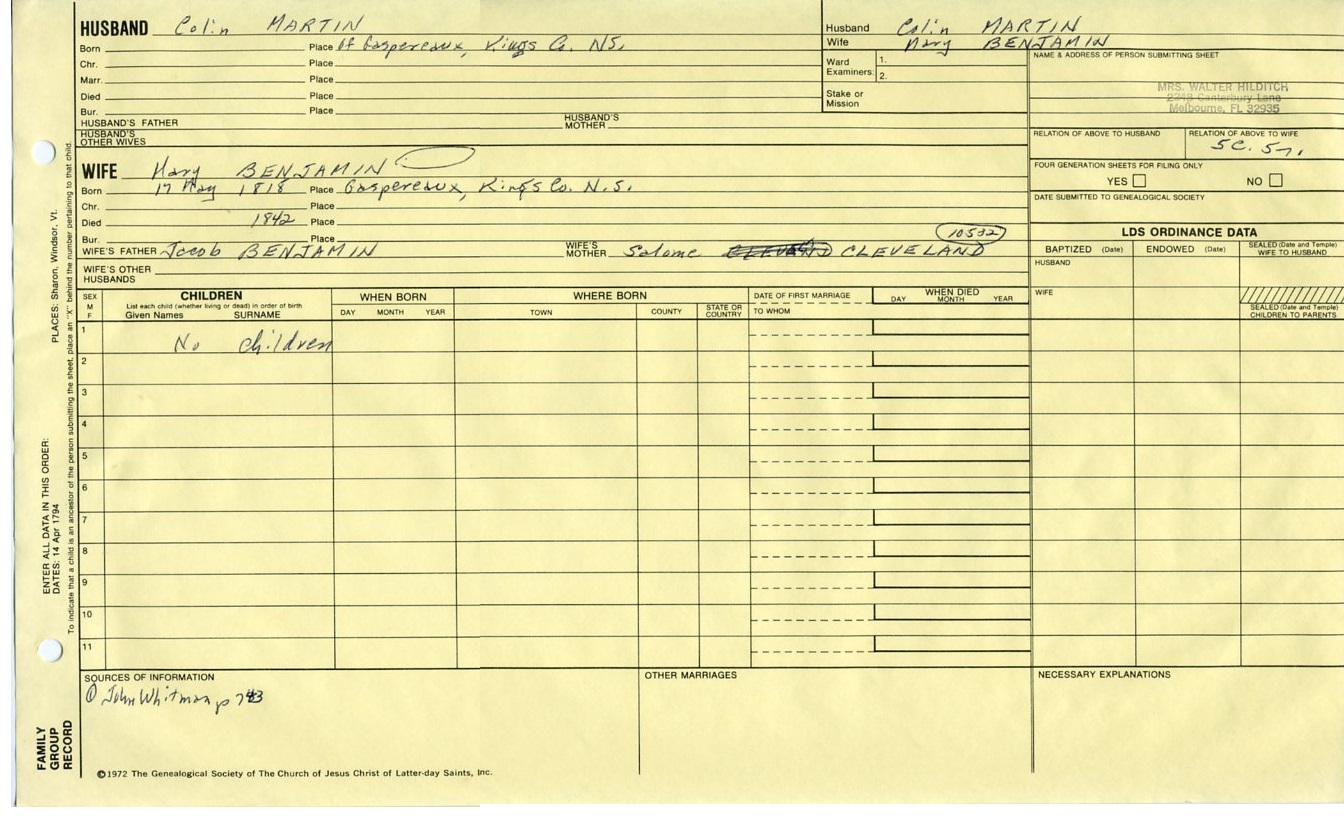 HUSBAND Colin MARTIN
Born Place Of Gaspereaux, Kings Co. NS.
Chr. Place
Marr. Place
Died Place
Bur. Place
HUSBAND'S FATHER HUSBAND'S MOTHER
HUSBAND'S OTHER WIVES
Husband Colin MARTIN
Wife Mary BENJAMIN
Ward Examiners: 1.
2.
Stake or Mission
NAME & ADDRESS OF PERSON SUBMITTING SHEET
MRS. WALTER HILDITCH
2249 Canterbury Lane
Melbourne, FL 32935
RELATION OF ABOVE TO HUSBAND RELATION OF ABOVE TO WIFE
5C. 5
FOUR GENERATION SHEETS FOR FILING ONLY
YES NO
DATE SUBMITTED TO GENEALOGICAL SOCIETY
WIFE Mary BENJAMIN
Born 17 May 1818 Place Gaspereaux, Kings Co. N.S.
Chr. Place
Died 1842 Place
Bur. Place
10532
WIFE'S FATHER Jacob BENJAMIN WIFE'S MOTHER Salome CLEVELAND
WIFE'S OTHER HUSBANDS
LDS ORDINANCE DATA
BAPTIZED (Date) ENDOWED (Date) SEALED (Date and Temple) WIFE TO HUSBAND
HUSBAND
WIFE
SEALED (Date and Temple) CHILDREN TO PARENTS
SEX M F
CHILDREN
List each child (whether living or dead) in order of birth
Given Names SURNAME
WHEN BORN
DAY MONTH YEAR
WHERE BORN
TOWN COUNTY STATE OR COUNTRY
DATE OF FIRST MARRIAGE
TO WHOM
WHEN DIED
DAY MONTH YEAR
1
No children
2
3
4
5
6
7
8
9
10
11
SOURCES OF INFORMATION
① John Whitman p 743
OTHER MARRIAGES
NECESSARY EXPLANATIONS
©1972 The Genealogical Society of The Church of Jesus Christ of Latter-day Saints, Inc.
FAMILY GROUP RECORD
ENTER ALL DATA IN THIS ORDER:
DATES: 14 Apr 1794
PLACES: Sharon, Windsor, Vt.
To indicate that a child is an ancestor of the person submitting the sheet, place an "X" behind the number pertaining to that child.